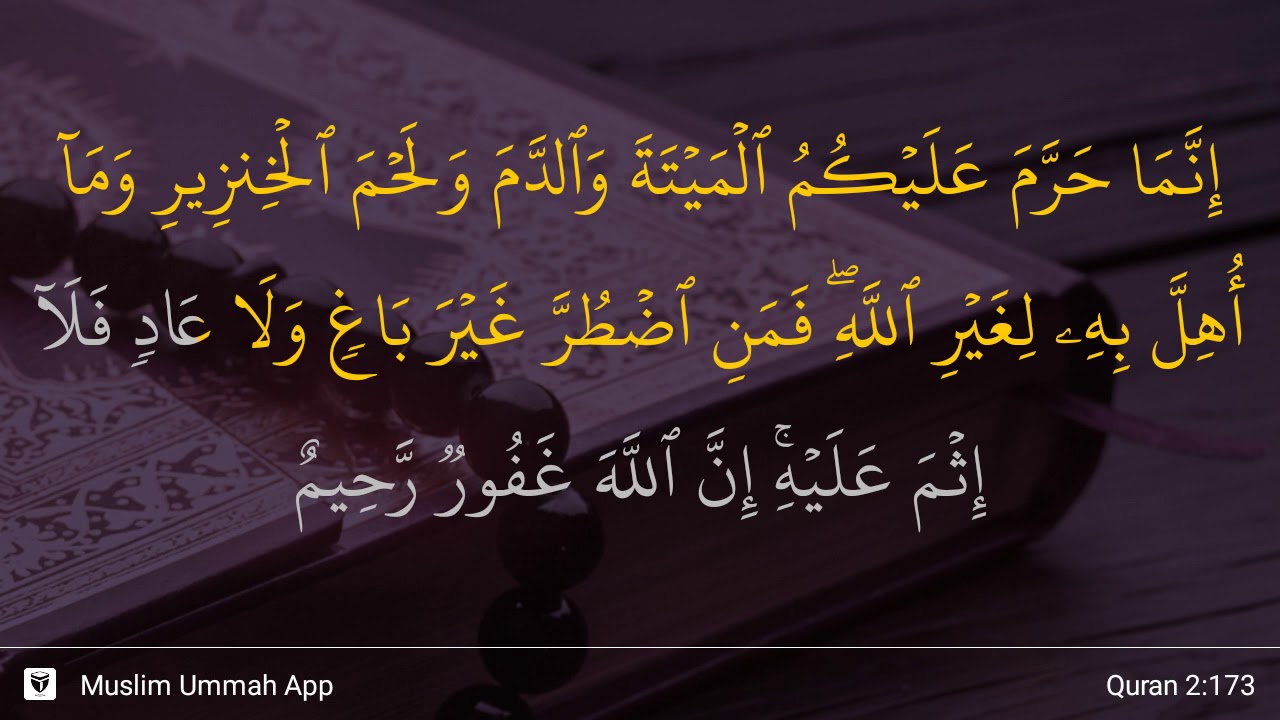 إِنَّمَا حَرَّمَ عَلَيۡكُمُ ٱلۡمَيۡتَةَ وَٱلدَّمَ وَلَحۡمَ ٱلۡخِنزِيرِ وَمَآ
أُهِلَّ بِهِۦ لِغَيۡرِ ٱللَّهِۖ فَمَنِ ٱضۡطُرَّ غَيۡرَ بَاغٖ وَلَا عَادٖ فَلَآ
إِثۡمَ عَلَيۡهِۚ إِنَّ ٱللَّهَ غَفُورٞ رَّحِيمٌ
Muslim Ummah App
Quran 2:173